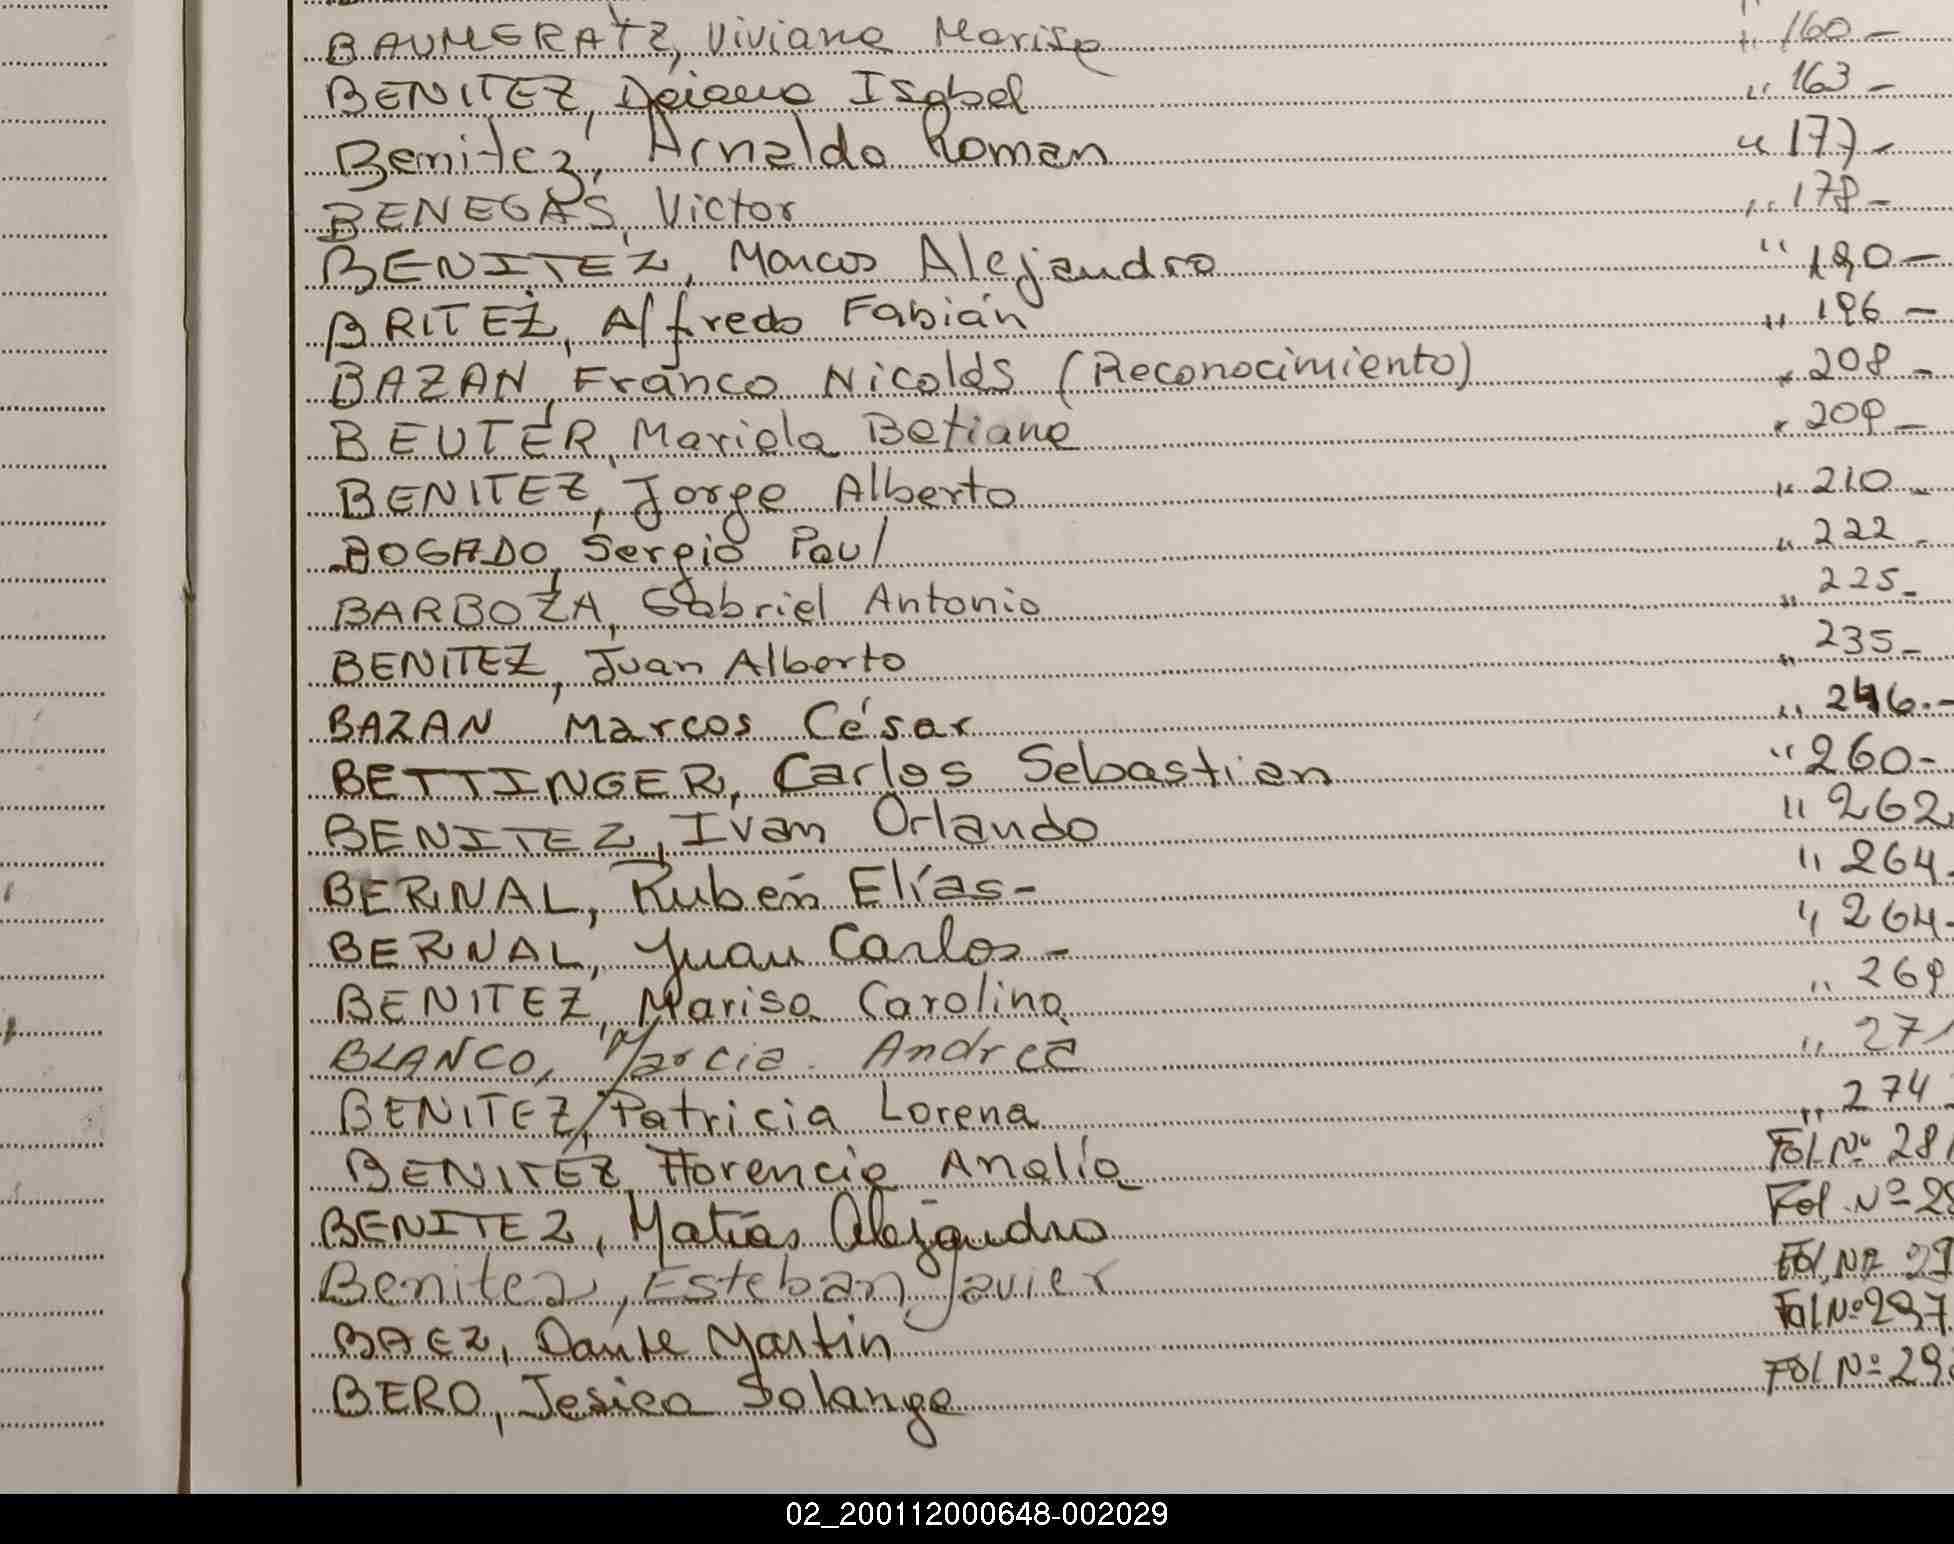 BAUMGRATZ, Viviana Marisa " 160 -
BENITEZ, Daiana Isabel " 163 -
Benitez, Arnaldo Roman " 177 -
BENEGAS, Victor " 178 -
BENITEZ, Marcos Alejandro " 190 -
BRITEZ, Alfredo Fabián " 196 -
BAZAN, Franco Nicolás (Reconocimiento) " 208 -
BEUTER, Mariela Betiana " 209 -
BENITEZ, Jorge Alberto " 210 -
BOGADO, Sergio Paul " 222 -
BARBOZA, Gabriel Antonio " 225 -
BENITEZ, Juan Alberto " 235 -
BAZAN Marcos César " 246.-
BETTINGER, Carlos Sebastian " 260 -
BENITEZ, Ivan Orlando " 262
BERNAL, Rubén Elías - " 264.
BERNAL, Juan Carlos - " 264.
BENITEZ, Marisa Carolina " 269
BLANCO, Marcia Andrea " 271
BENITEZ, Patricia Lorena " 274
BENITEZ, Florencia Analía Fol Nº 281
BENITEZ, Matías Alejandro Fol Nº
Benitez, Esteban Javier Fol. Nº
BAEZ, Dante Martin Fol Nº 297
BERO, Jesica Solange Fol Nº
02_200112000648-002029